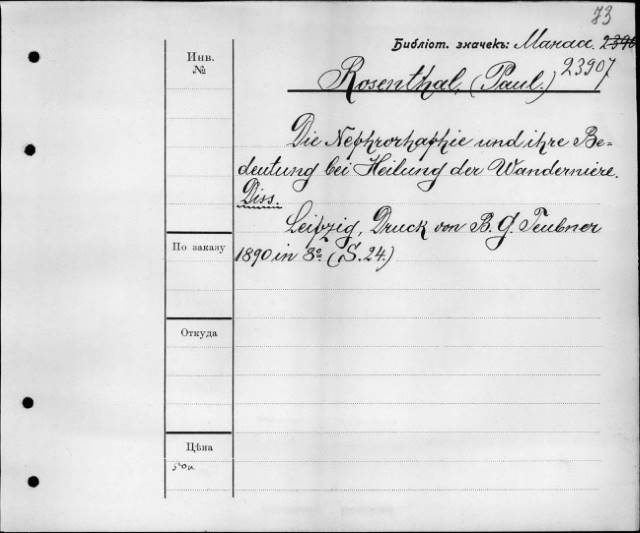 73
Библіот. значекъ: 2390
Инв. №
Rosenthal, (Paul.) 23907
Die Nephrorhaphie und ihre Be-
deutung bei Heilung der Wanderniere.
Diss.
Leipzig, Druck von B. G. Teubner
По заказу
1890 in 8º. (S. 24.)
Откуда
Цѣна